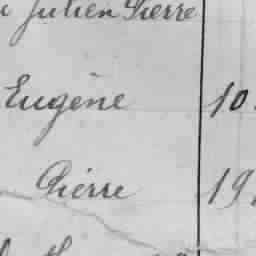 Julien Pierre
Eugène 10
Pierre 19